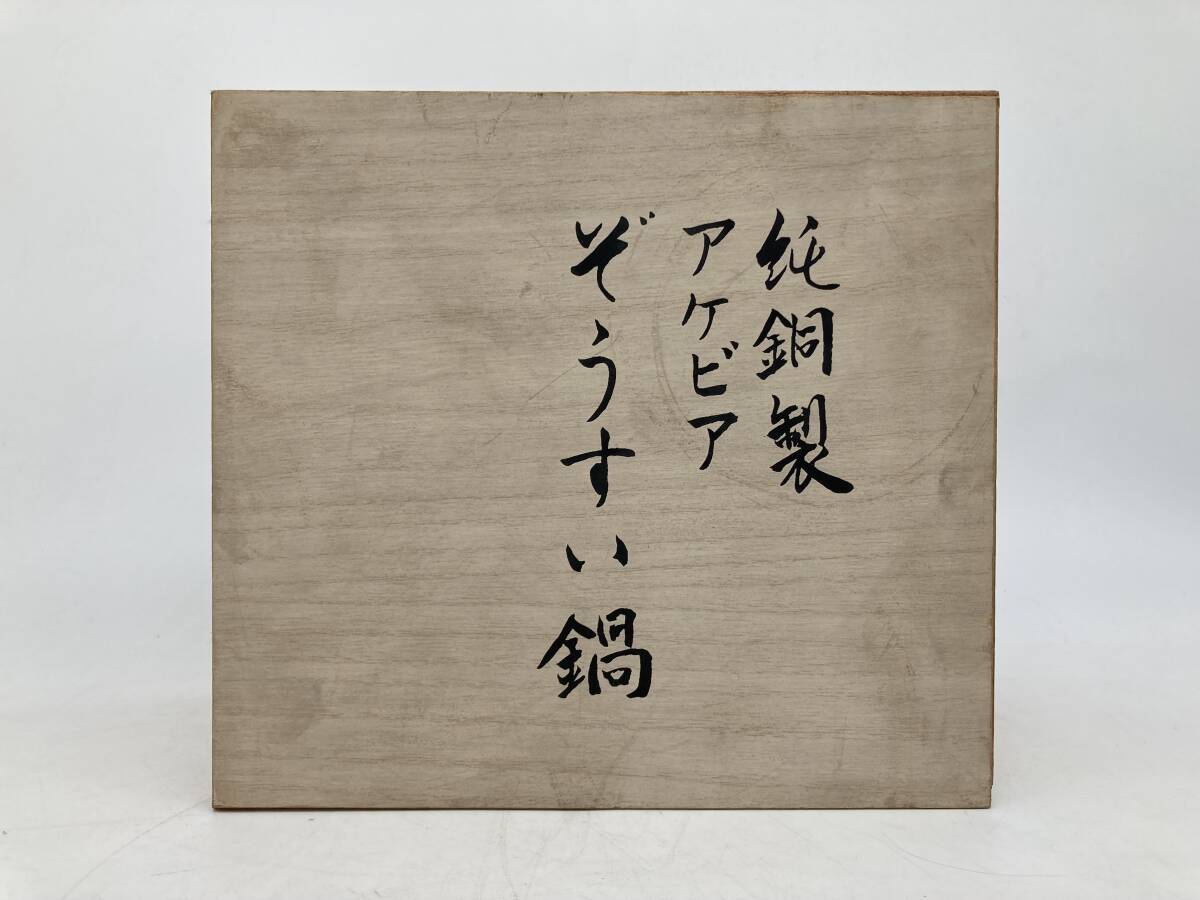 純銅製
アケビア
ぞうすい鍋